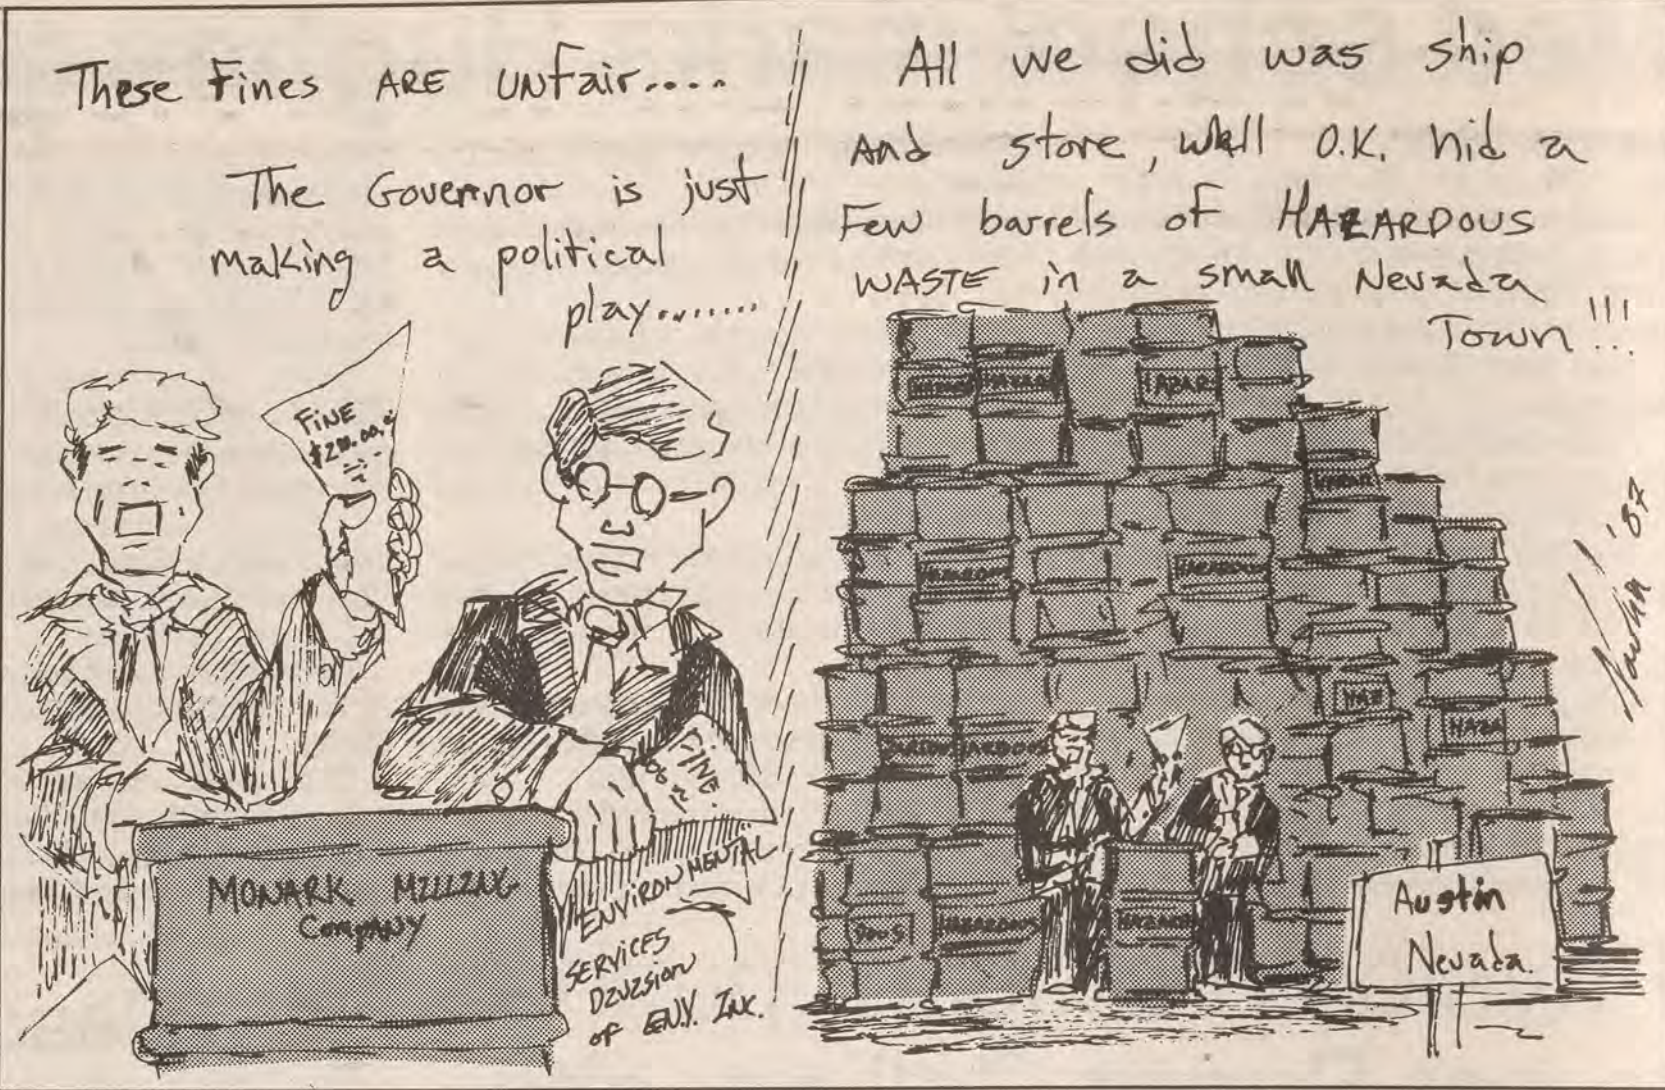 These Fines ARE UNfair.....
The Governor is just
making a political
play........
FINE
FINE
MONARK MILLING
Company
ENVIRONMENTAL
SERVICES
DIVISION
of EN.V. Inc.
All we did was ship
And store, Well O.K. hid a
Few barrels of HAZARDOUS
WASTE in a small Nevada
Town !!!
HAZAR
HAZARDOUS
HAZ
HAZA
HAZARDOUS
Austin
Nevada.
'87